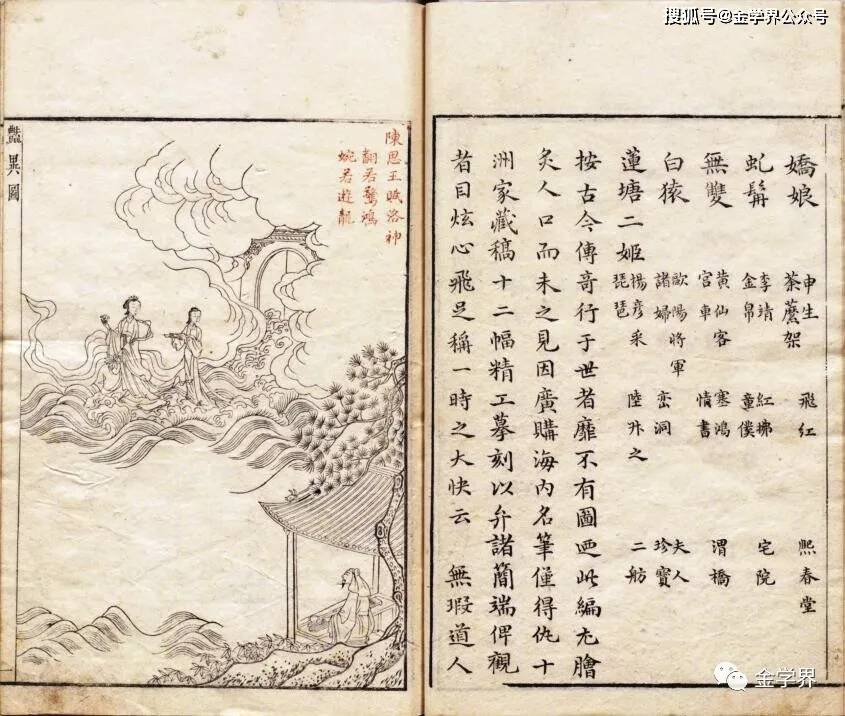 搜狐号@金学界公众号
嬌娘 申生 荼蘼架 飛紅 熙春堂
虬髯 李靖 金帛 紅拂 童僕 宅院
無雙 黃仙客 宮車 塞鴻 情書 渭橋
白猿 歐陽將軍 諸婦 峦洞 夫人 珍寶
蓮塘二姬 楊彥采 琵琶 陸升之 二舫
按古今傳奇行于世者靡不有圖迺此編尤膾
炙人口而未之見因廣購海內名筆僅得仇十
洲家藏稿十二幅精工摹刻以弁諸簡端俾觀
者目炫心飛足稱一時之大快云 無瑕道人
陳思王賦洛神
翩若驚鴻
婉若遊龍
豔異圖
金学界